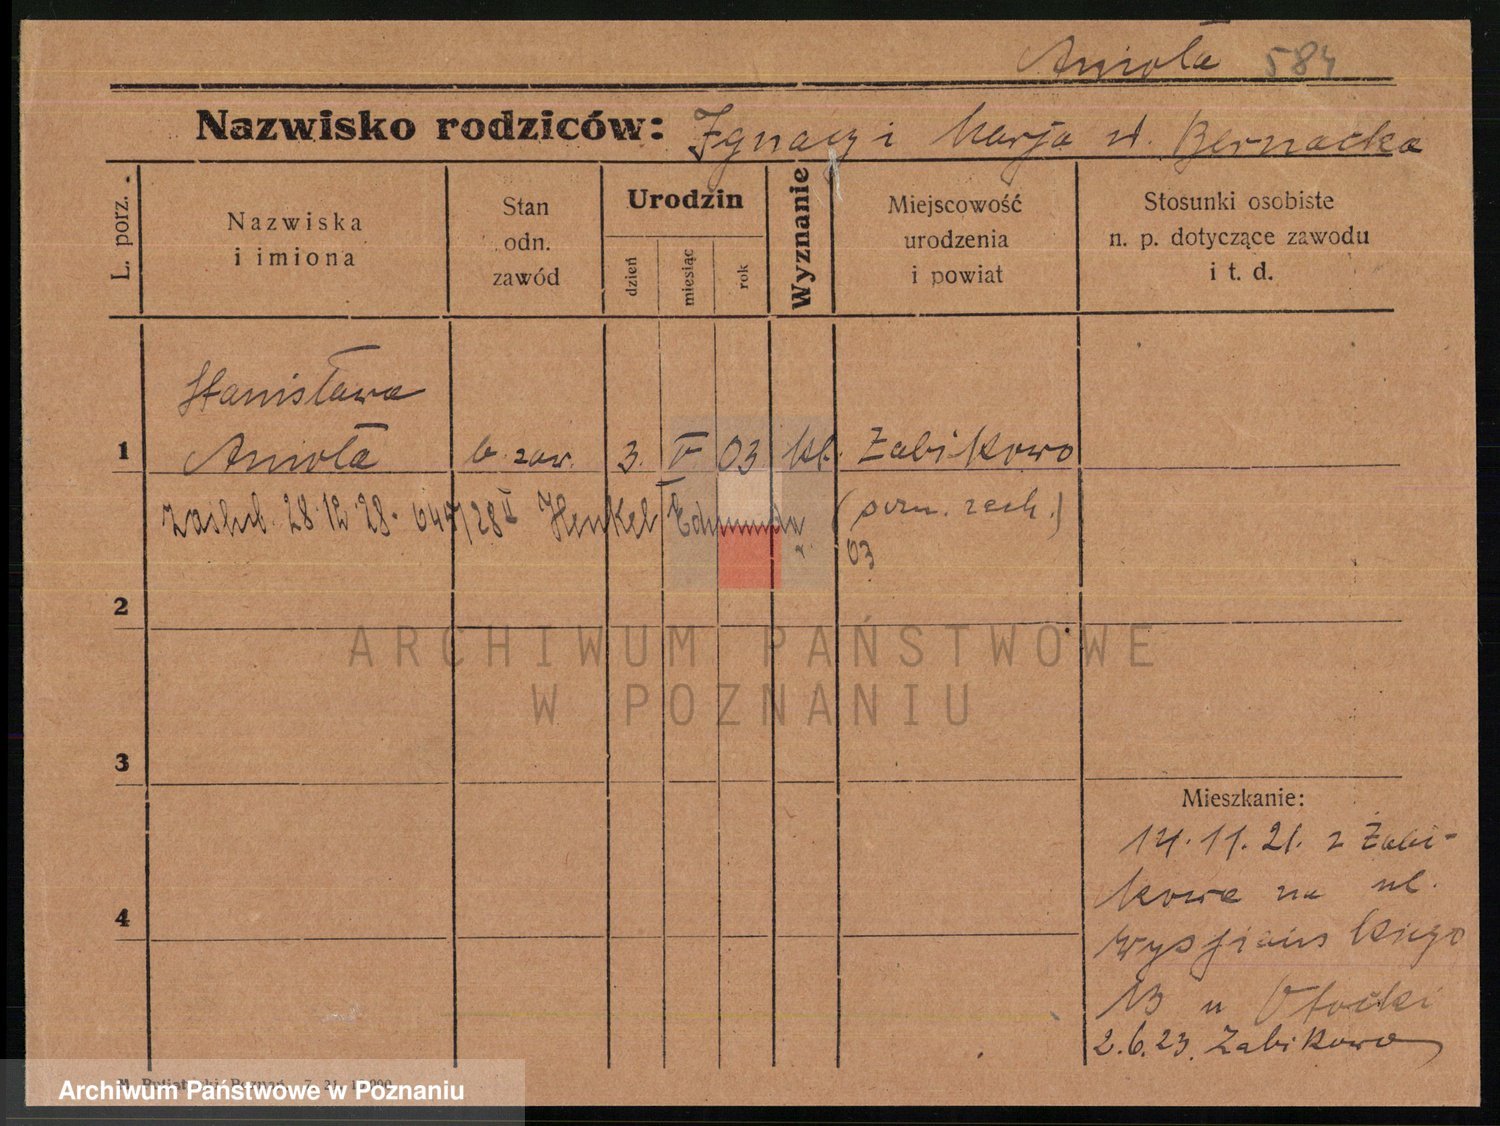 Anioła 584
Nazwisko rodziców: Ignacy i Marja ur. Bernacka
L. porz.
Nazwiska
i imiona
Stan
odn.
zawód
Urodzin
dzień
miesiąc
rok
Wyznanie
Miejscowość
urodzenia
i powiat
Stosunki osobiste
n. p. dotyczące zawodu
i t. d.
Stanisława
1 Anioła b. zaw. 3. V 03 kt. Żabikowo
zaślub. 28.12.28. 647/28 II Henkel Edmunda (pozn. zach.)
03
2
ARCHIWUM PAŃSTWOWE
W POZNANIU
3
Mieszkanie:
14.11.21. z Żabi-
kowa na ul.
Wyspiańskiego
13 u
4
2.6.23. Żabikowo
Archiwum Państwowe w Poznaniu